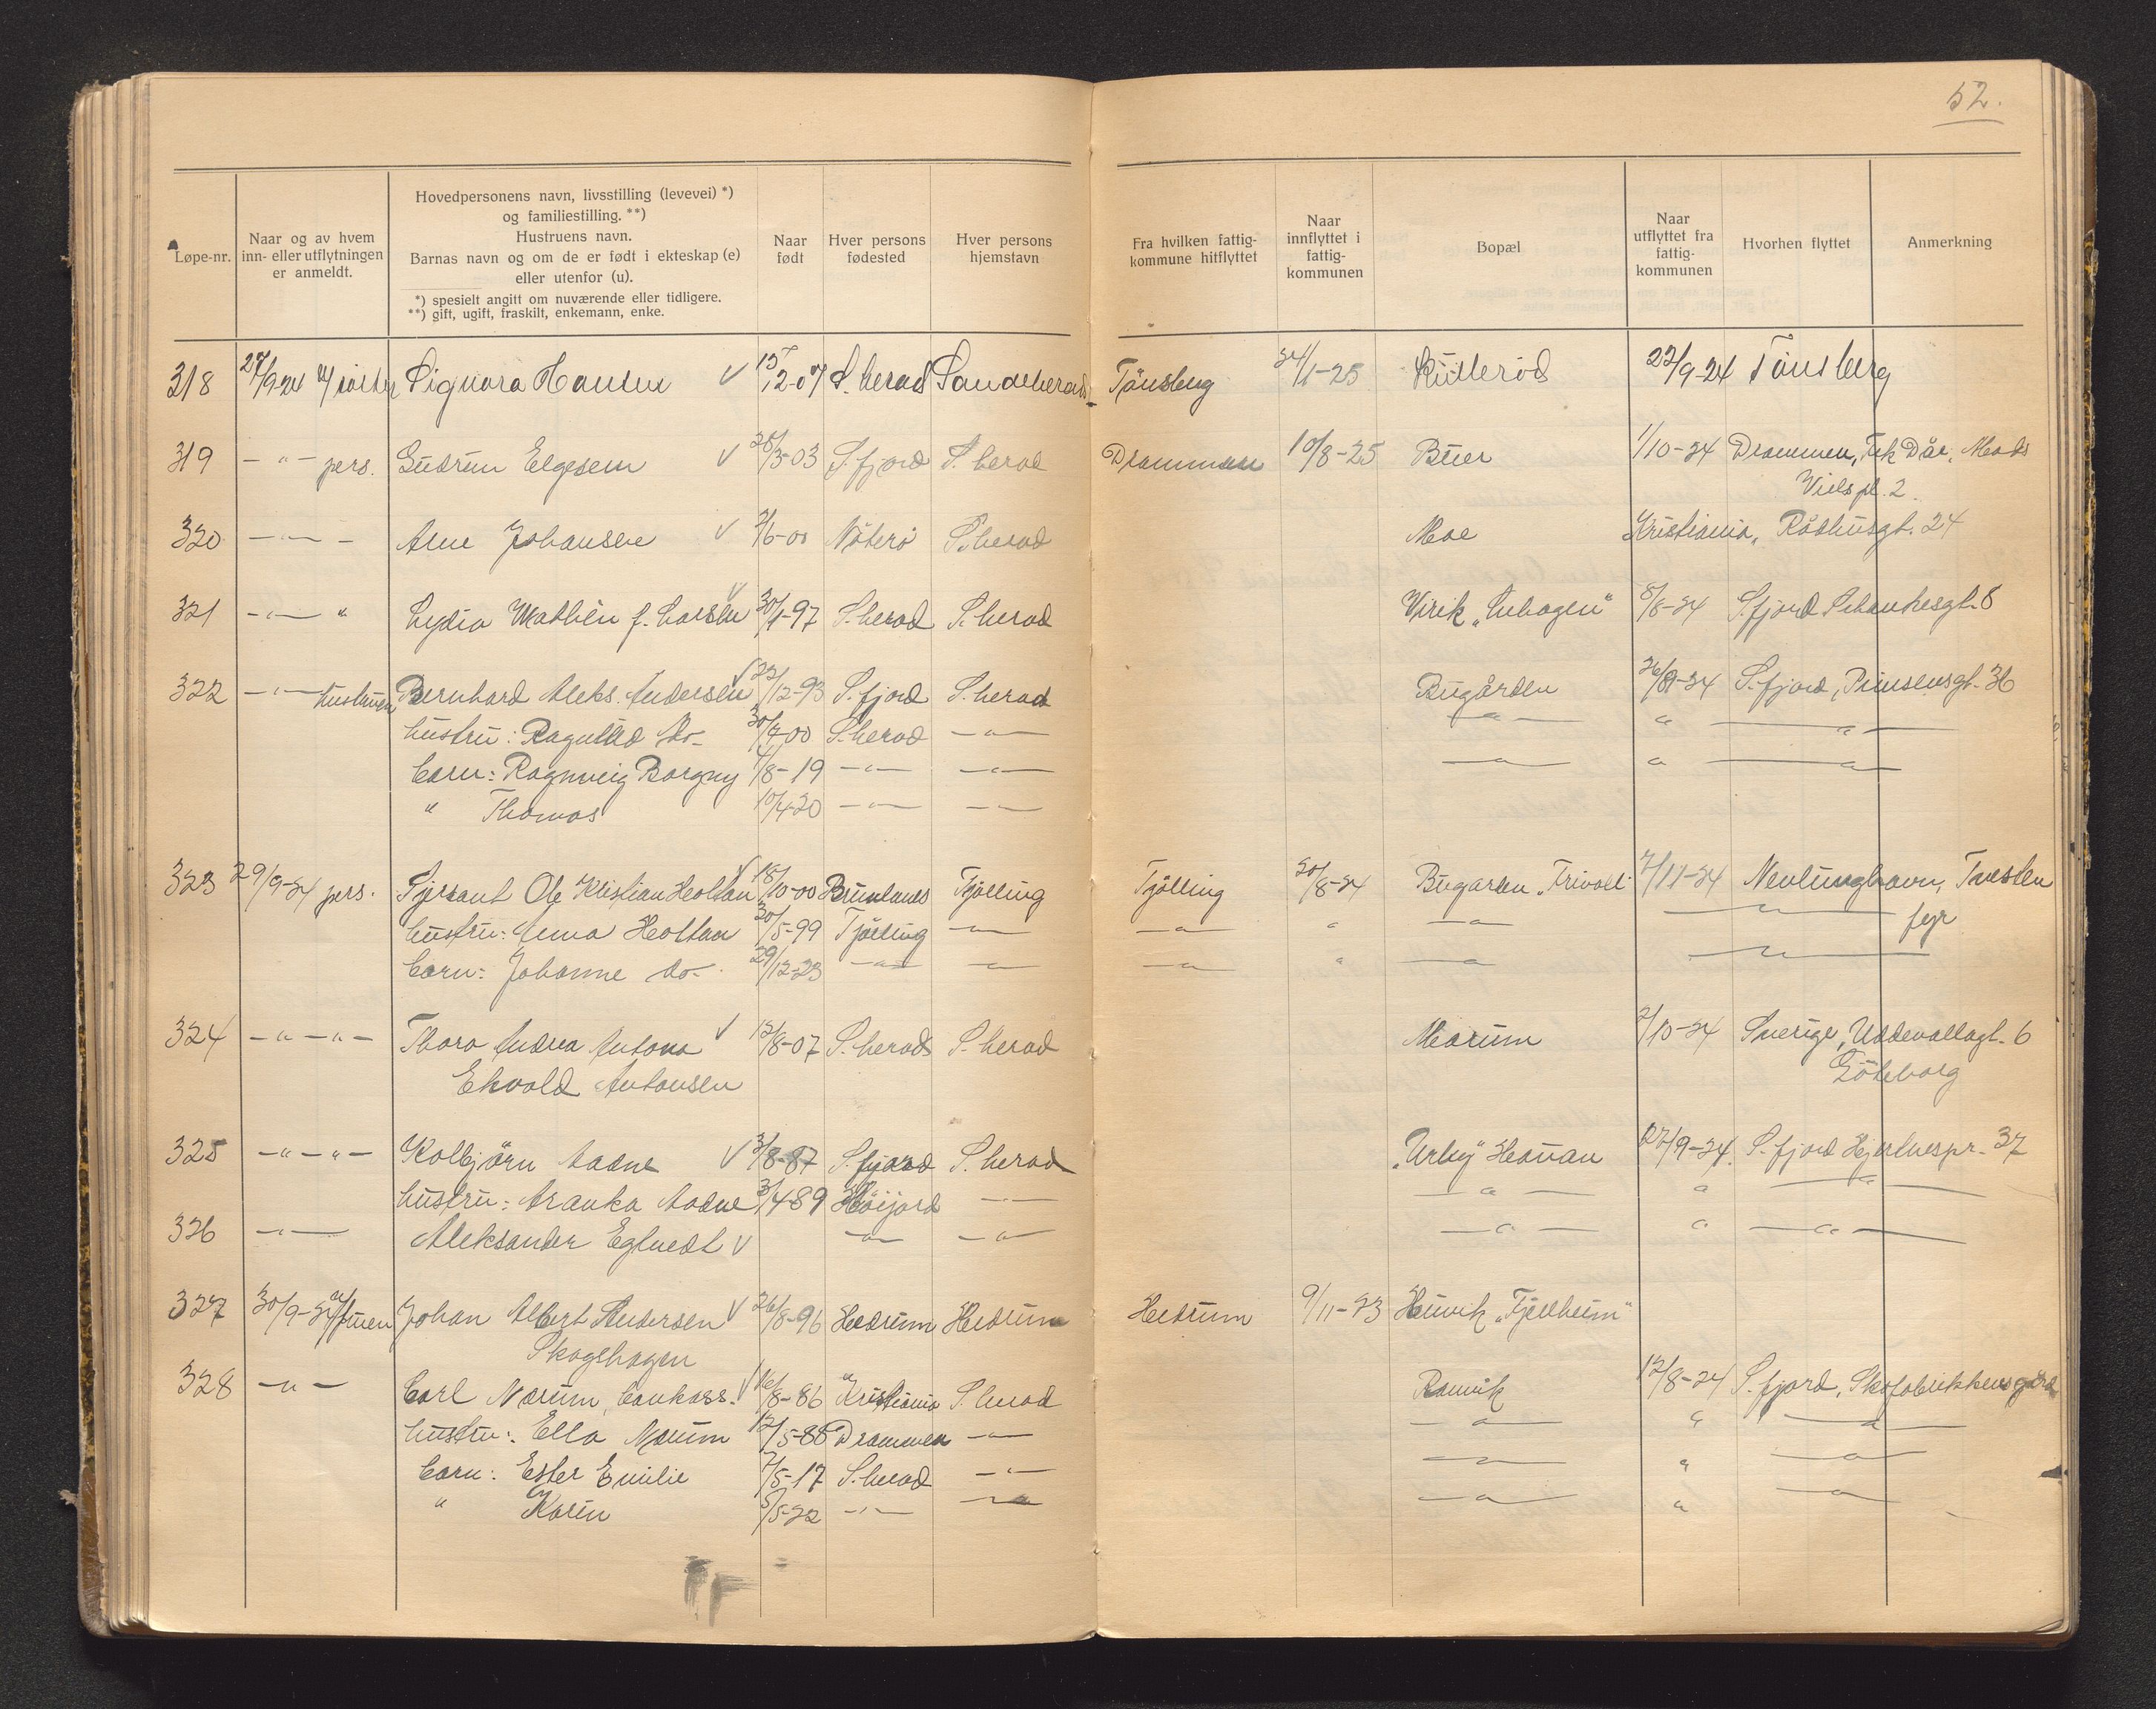 52.
Løpe-nr.
Naar og av hvem inn- eller utflytningen er anmeldt.
Hovedpersonens navn, livsstilling (levevei) *)
og familiestilling. **)
Hustruens navn.
Barnas navn og om de er født i ekteskap (e)
eller utenfor (u).
*) spesielt angitt om nuværende eller tidligere.
**) gift, ugift, fraskilt, enkemann, enke.
Naar født
Hver persons fødested
Hver persons hjemstavn
Fra hvilken fattigkommune hitflyttet
Naar innflyttet i fattigkommunen
Bopæl
Naar utflyttet fra fattigkommunen
Hvorhen flyttet
Anmerkning
318 27/9-24 Signora Hansen V 12-07 S. herad Sandeherad Tönsberg 24/1-25 23/9-24 Tönsberg
319 - " - pers. Gudrun Elgesem V 28/3-03 S. fjord S. herad Drammen 10/8-25 Buer 1/10-24 Drammen,
Viels pl. 2
320 - " - Arne Johansen V 2/6-00 Nöterö S. herad Moe Kristiania, Rådhusgt. 24
321 - " - " Lydia Mathea f. Larsen V 30/1-97 S. herad S. herad Virik 5/8-24 S. fjord Schankesgt. 8
322 - " - hustruen Bernhard Aleks. Andersen V 22/12-93 S. fjord S. herad Bugården 26/9-24 S. fjord, Prinsensgt. 36
hustru: Ragnhild do- 30/7-00 S. herad - " - - " - " - " -
barn: Ragnveig Borgny 4/8-19 - " - - " - - " - " - " -
" Thomas 10/4-20 - " - - " -
323 29/9-24 pers. Sjersant Ole Kristian Holtan V 18/10-00 Brunlanes Tjölling Tjölling 20/8-24 Bugården „Frivold" 7/11-24 Nevlunghavn, Tvesten
fyr
hustru: Anna Holtan 30/5-99 Tjölling - " - - " - " - " - - " -
barn: Johanne do-. 29/12-23 - " - - " - - " - " - " - - " -
324 - " - " - Thora Andrea Antona V 12/8-07 S. herad S. herad Marum 2/10-24 Sverige, Uddevallagt. 6
Ekvold Antonsen Göteborg
325 - " - " - Kolbjörn Aadne V 3/8-87 S. fjord S. herad Hauan 27/9-24 S. fjord Hjertnespr. 37
hustru: Aranka Aadne 3/4-89 Höijord - " - - " - " - " -
326 - " - Aleksander Egtvedt V - " - - " - - " - " - " -
327 30/9-24 Johan Albert Andersen V 26/8-96 Hedrum Hedrum Hedrum 9/11-23 Hauvik „Fjellheim"
Skogshagen
328 - " - Carl Norum, bankass. V 16/8-86 Kristiania S. herad Ranvik 12/8-24 S. fjord, Skofabrikkensgård
hustru: Ella Norum 12/5-88 Drammen - " - - " - " - " -
barn: Ester Emilie 7/5-17 S. herad - " - - " - " - " -
" Karin 5/5-22 - " - - " - - " - " - " -